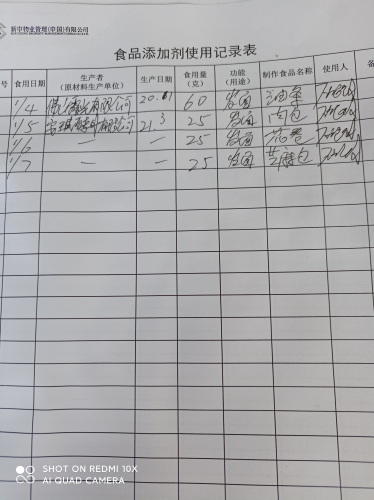 新中物业管理(中国)有限公司
食品添加剂使用记录表
号 食用日期 生产者 (原材料生产单位) 生产日期 食用量 (克) 功能 (用途) 制作食品名称 使用人 备
1/4 有限公司 60 发面 油条
1/5 有限公司 21.3 25 发面 肉包
1/6 — — 25 发面 花卷
1/7 — — 25 发面 芝麻包
SHOT ON REDMI 10X
AI QUAD CAMERA